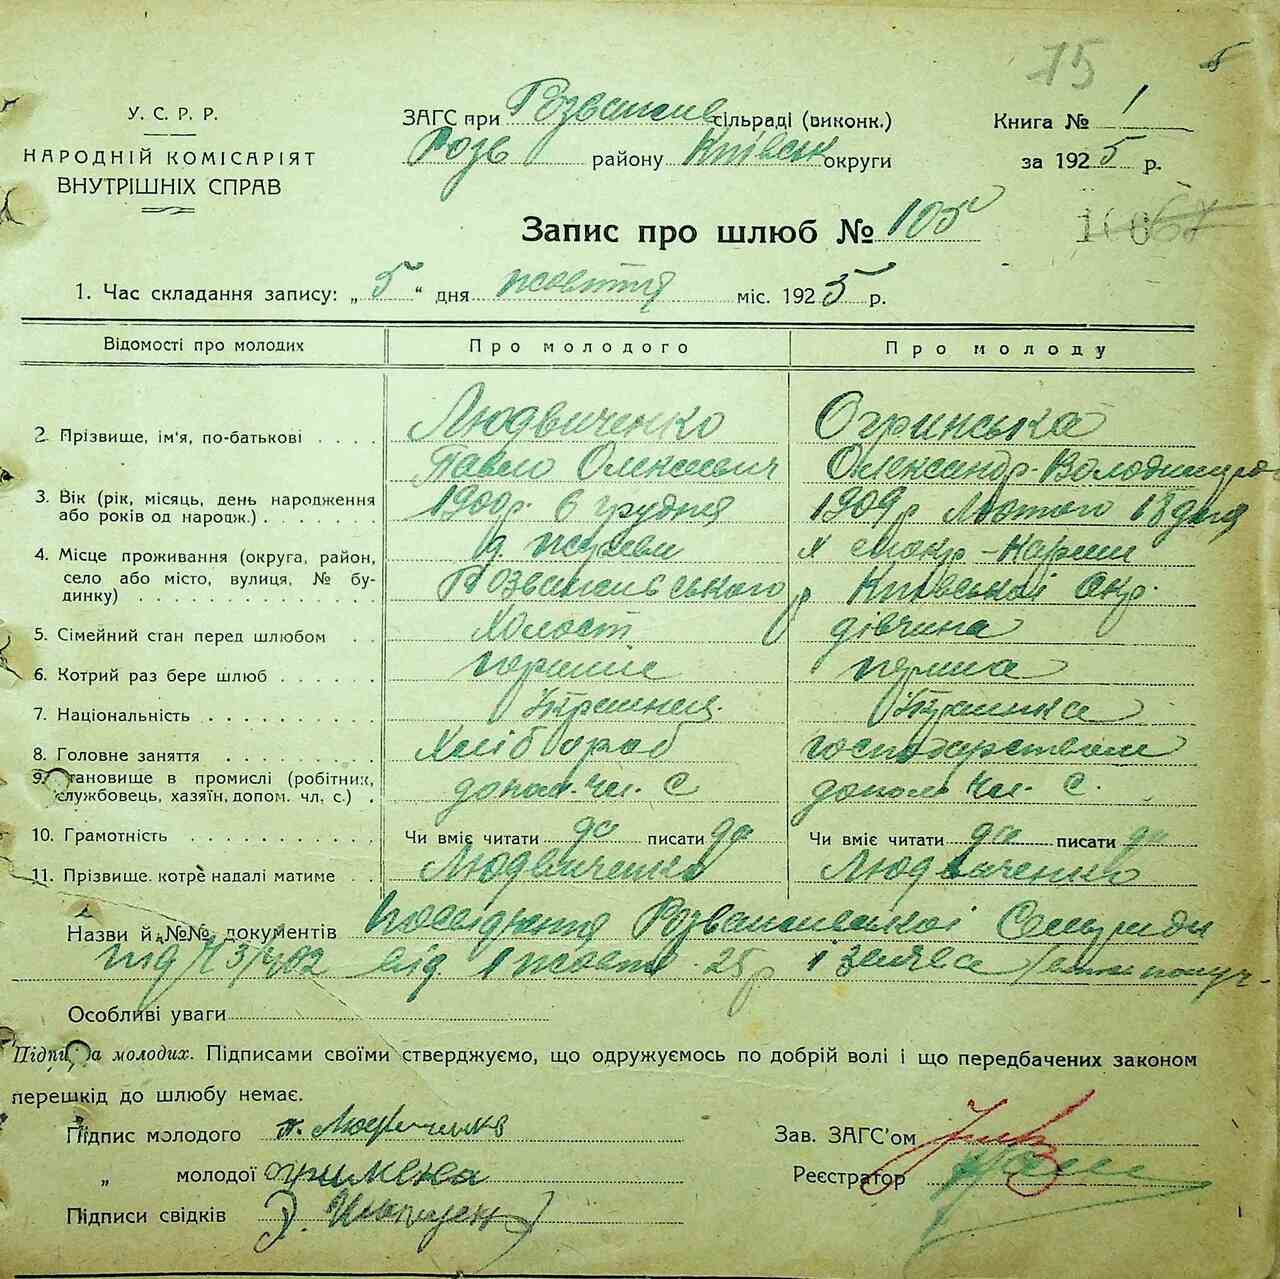 15 5
У. С. Р. Р.
НАРОДНІЙ КОМІСАРІЯТ
ВНУТРІШНІХ СПРАВ
ЗАГС при Розважив сільраді (виконк.)
Розв району Київськ округи
Книга № 1
за 1925 р.
Запис про шлюб № 105
1. Час складання запису: „ 5 “ дня жовтня міс. 1925 р.
Відомості про молодих Про молодого Про молоду
2. Прізвище, ім'я, по-батькові . . . . Людвиченко Огринська
Павло Олексієвич Олександр. Володимиро
3. Вік (рік, місяць, день народження або років од народж.) . . . . . . . 1900 р. 6 грудня 1909 р Лютого 18 дня
4. Місце проживання (округа, район, село або місто, вулиця, № будинку) . . . . . . . . . . . . . х
Розважівського р Київської Окр.
5. Сімейний стан перед шлюбом . . Холост дівчина
6. Котрий раз бере шлюб . . . . . . перший перша
7. Національність . . . . . . . . . . Українец. Українка
8. Головне заняття . . . . . . . . . Хліббороб господарством
9. Становище в промислі (робітник, службовець, хазяїн, допом. чл. с.) . допом. чл. С допом чл. С.
10. Грамотність . . . . . . . . . . . Чи вміє читати да писати да Чи вміє читати да писати да
11. Прізвище, котре надалі матиме . . Людвиченко Людвиченко
Назви й №№ документів Посвідчення Розважівської Сельради
під № 3/402 від 1 жовтн. 25 р і
Особливі уваги
Підписи молодих. Підписами своїми стверджуємо, що одружуємось по добрій волі і що передбачених законом
перешкід до шлюбу немає.
Підпис молодого п. Людвиченко
„ молодої
Підписи свідків
Зав. ЗАГС'ом
Реєстратор